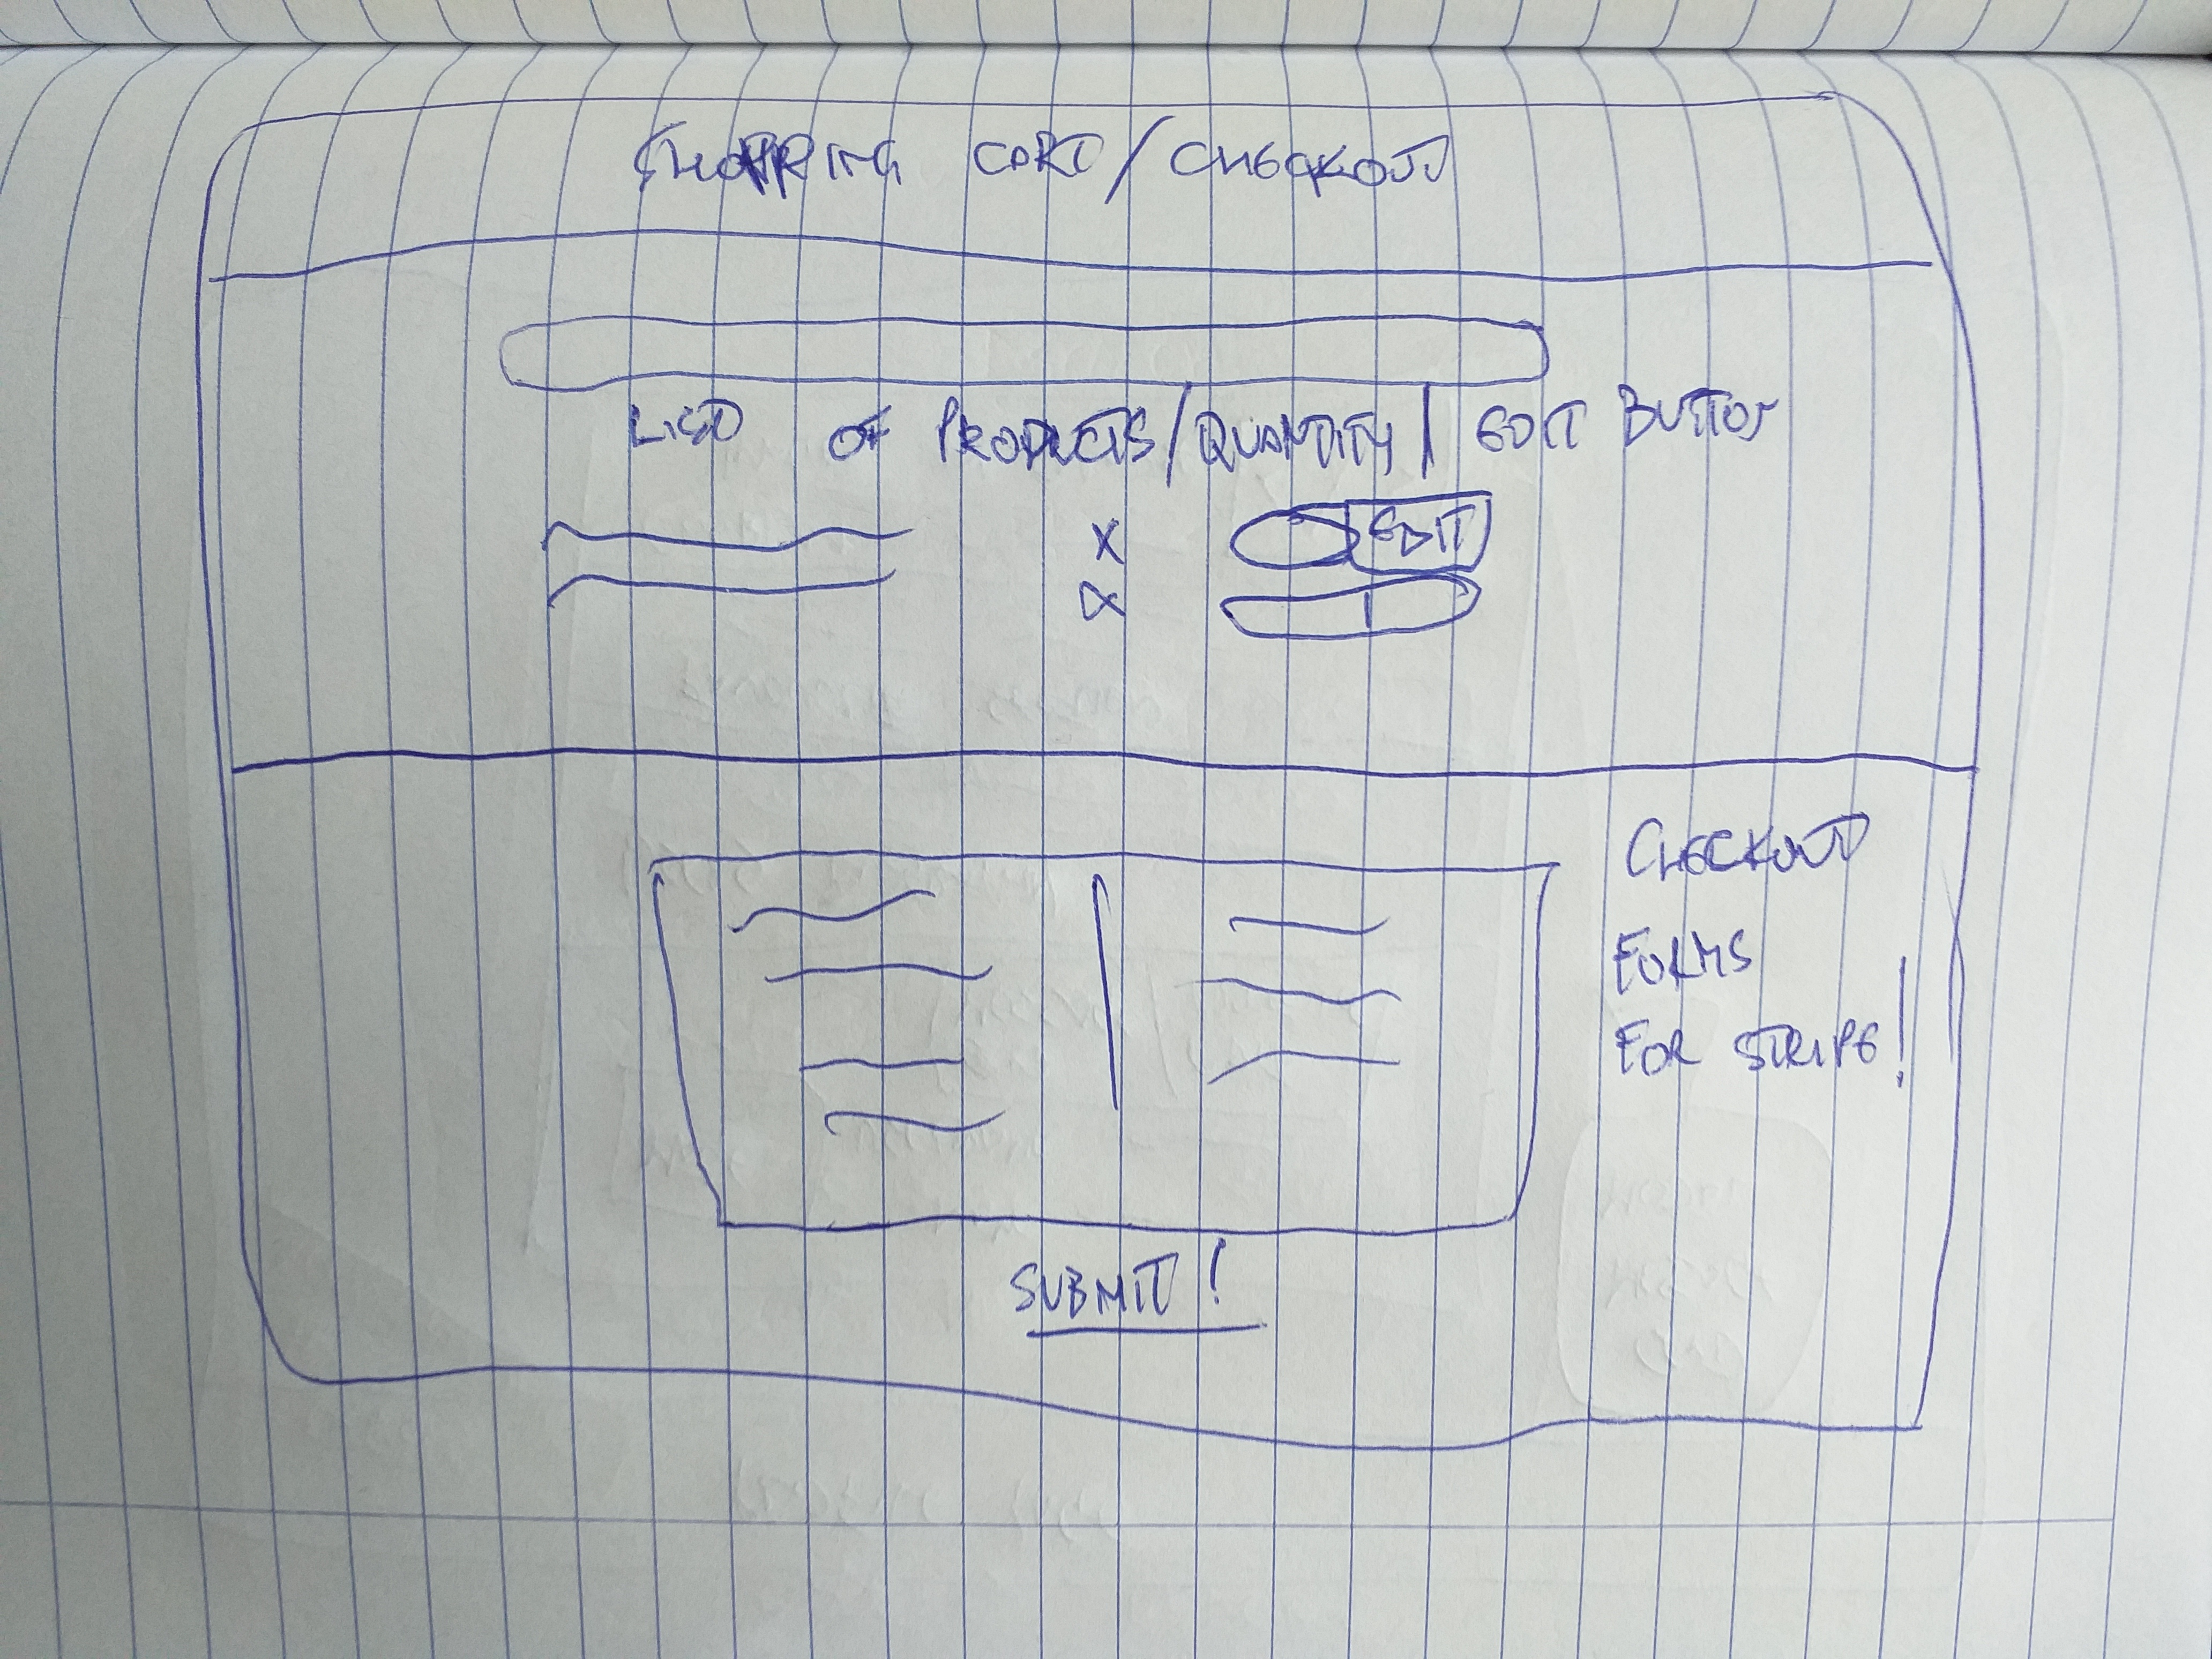 SHOPPING CART/CHECKOUT
LIST OF PRODUCTS/QUANTITY/ EDIT BUTTON
X EDIT
X
CHECKOUT
FORMS
FOR STRIPE!
SUBMIT!